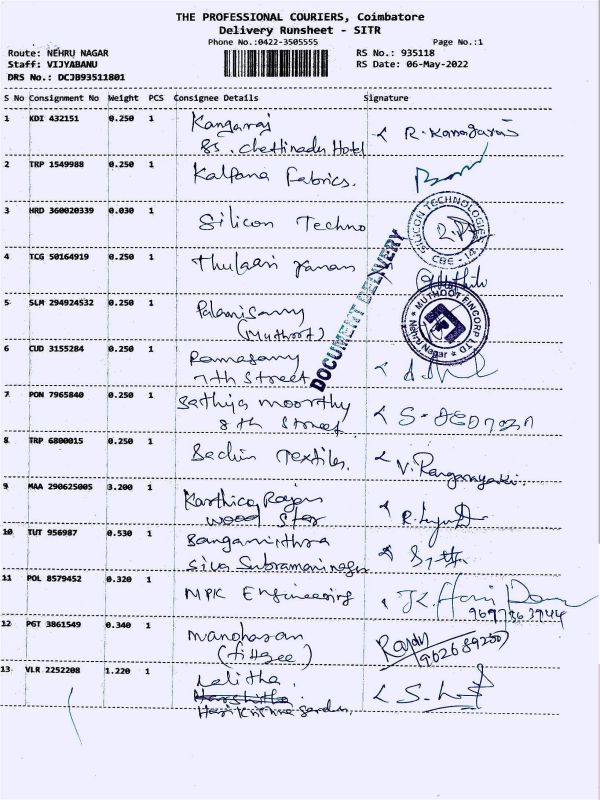 THE PROFESSIONAL COURIERS, Coimbatore
Delivery Runsheet - SITR
Phone No.:0422-3505555 Page No.:1
Route: NEHRU NAGAR RS No.: 935118
Staff: VIJYABANU RS Date: 06-May-2022
DRS No.: DCJB93511801
S No Consignment No Weight PCS Consignee Details Signature
1 KDI 432151 0.250 1 Kangaraj R. Kanagaraj
SS. Chettinadu Hotel
2 TRP 1549988 0.250 1 Kalpana Fabrics.
3 HRD 360020339 0.030 1 Silicon Techno
SILICON TECHNOLOGIES
CBE - 14
4 TCG 50164919 0.250 1 Thulasi
DOCUMENT DELIVERY
5 SLM 294924532 0.250 1 Palanisamy
(Muthoot)
MUTHOOT FINCORP LTD
Nehru Nagar
6 CUD 3155284 0.250 1 Ramasamy
7th Street
7 PON 7965840 0.250 1 Sathya moorthy
8th Street
8 TRP 6800015 0.250 1 Sachin Textiles. V. Ranganayaki.
9 MAA 290625005 3.200 1 Karthica Rajan
wood Star
10 TUT 956987 0.530 1 Sangamithra
Siva Subramani nagar
11 POL 8579452 0.320 1 MPK Engineering
12 PGT 3861549 0.340 1 Manoharan Rajan
13 VLR 2252208 1.220 1 Lalitha.
Harikrishna garden.